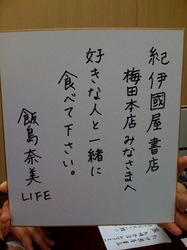 紀伊國屋書店
梅田本店みなさまへ
好きな人と一緒に
食べて下さい。
飯島奈美
LIFE